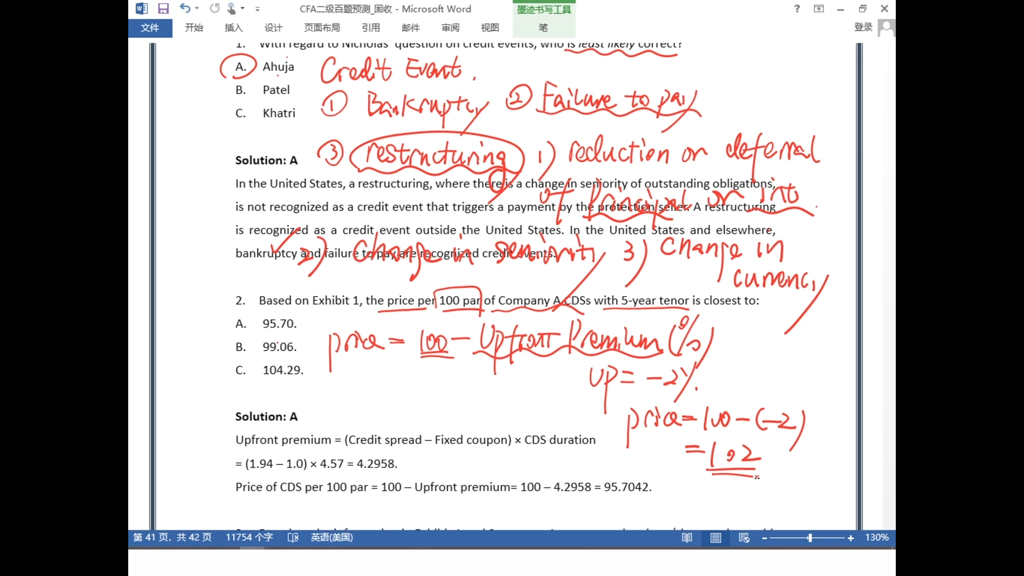 CFA二级百题预测_固收 - Microsoft Word
墨迹书写工具
文件 开始 插入 设计 页面布局 引用 邮件 审阅 视图 笔 登录
1. With regard to Nicholas' question on credit events, who is least likely correct?
A. Ahuja
B. Patel
C. Khatri
Credit Event.
① Bankruptcy ② Failure to pay
③ restructuring 1) reduction or deferral
of Principal or int
2) change in seniority 3) change in
currency
Solution: A
In the United States, a restructuring, where there is a change in seniority of outstanding obligations,
is not recognized as a credit event that triggers a payment by the protection seller. A restructuring
is recognized as a credit event outside the United States. In the United States and elsewhere,
bankruptcy and failure to pay are recognized credit events.
2. Based on Exhibit 1, the price per 100 par of Company A CDSs with 5-year tenor is closest to:
A. 95.70.
B. 99.06.
C. 104.29.
price = 100 - Upfront Premium (%)
UP = -2%.
price = 100 - (-2)
= 102
Solution: A
Upfront premium = (Credit spread – Fixed coupon) × CDS duration
= (1.94 – 1.0) × 4.57 = 4.2958.
Price of CDS per 100 par = 100 – Upfront premium= 100 – 4.2958 = 95.7042.
第 41 页，共 42 页 11754 个字 英语(美国) 130%